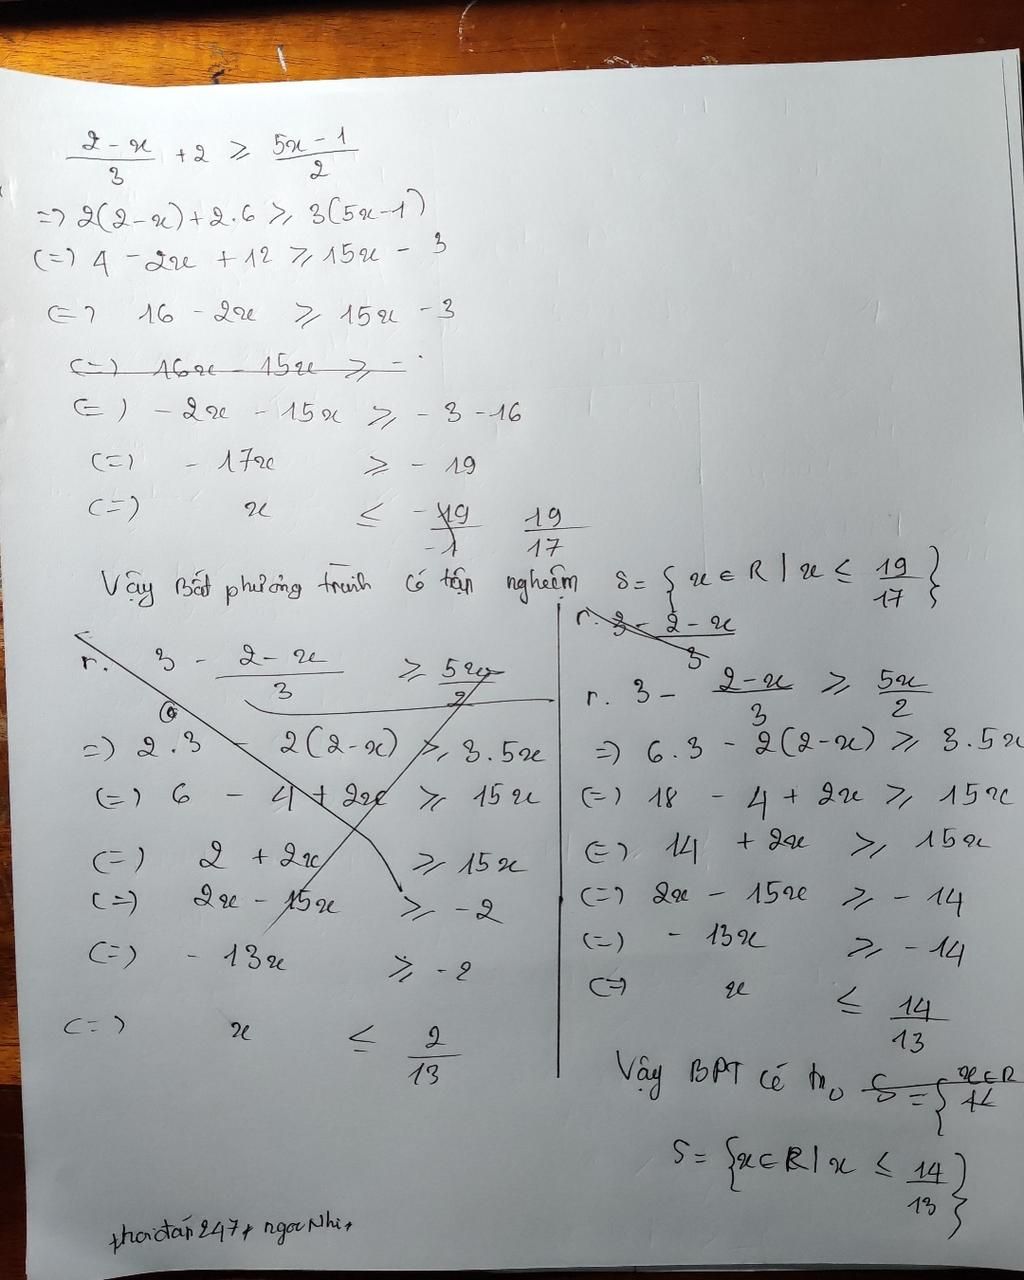 (2-x)/3 + 2 ≥ (5x-1)/2
=> 2(2-x) + 2.6 ≥ 3(5x-1)
(=) 4 - 2x + 12 ≥ 15x - 3
(=) 16 - 2x ≥ 15x - 3
(=) 16x - 15x ≥ -
(=) - 2x - 15x ≥ - 3 - 16
(=) - 17x ≥ - 19
(=) x ≤ 19/17
Vậy Bất phương trình có tập nghiệm S = {x ∈ R | x ≤ 19/17}
r. 3 - (2-x)/3 ≥ 5x/2
=) 2.3 - 2(2-x) ≥ 3.5x
(=) 6 - 4 + 2x ≥ 15x
(=) 2 + 2x ≥ 15x
(=) 2x - 15x ≥ -2
(=) - 13x ≥ -2
(=) x ≤ 2/13
r. 3 - (2-x)/3
r. 3 - (2-x)/3 ≥ 5x/2
=) 6.3 - 2(2-x) ≥ 3.5x
(=) 18 - 4 + 2x ≥ 15x
(=) 14 + 2x ≥ 15x
(=) 2x - 15x ≥ - 14
(=) - 13x ≥ - 14
(=) x ≤ 14/13
Vậy BPT có tn S = { x∈R
S = {x∈R | x ≤ 14/13}
247 ngocNhi